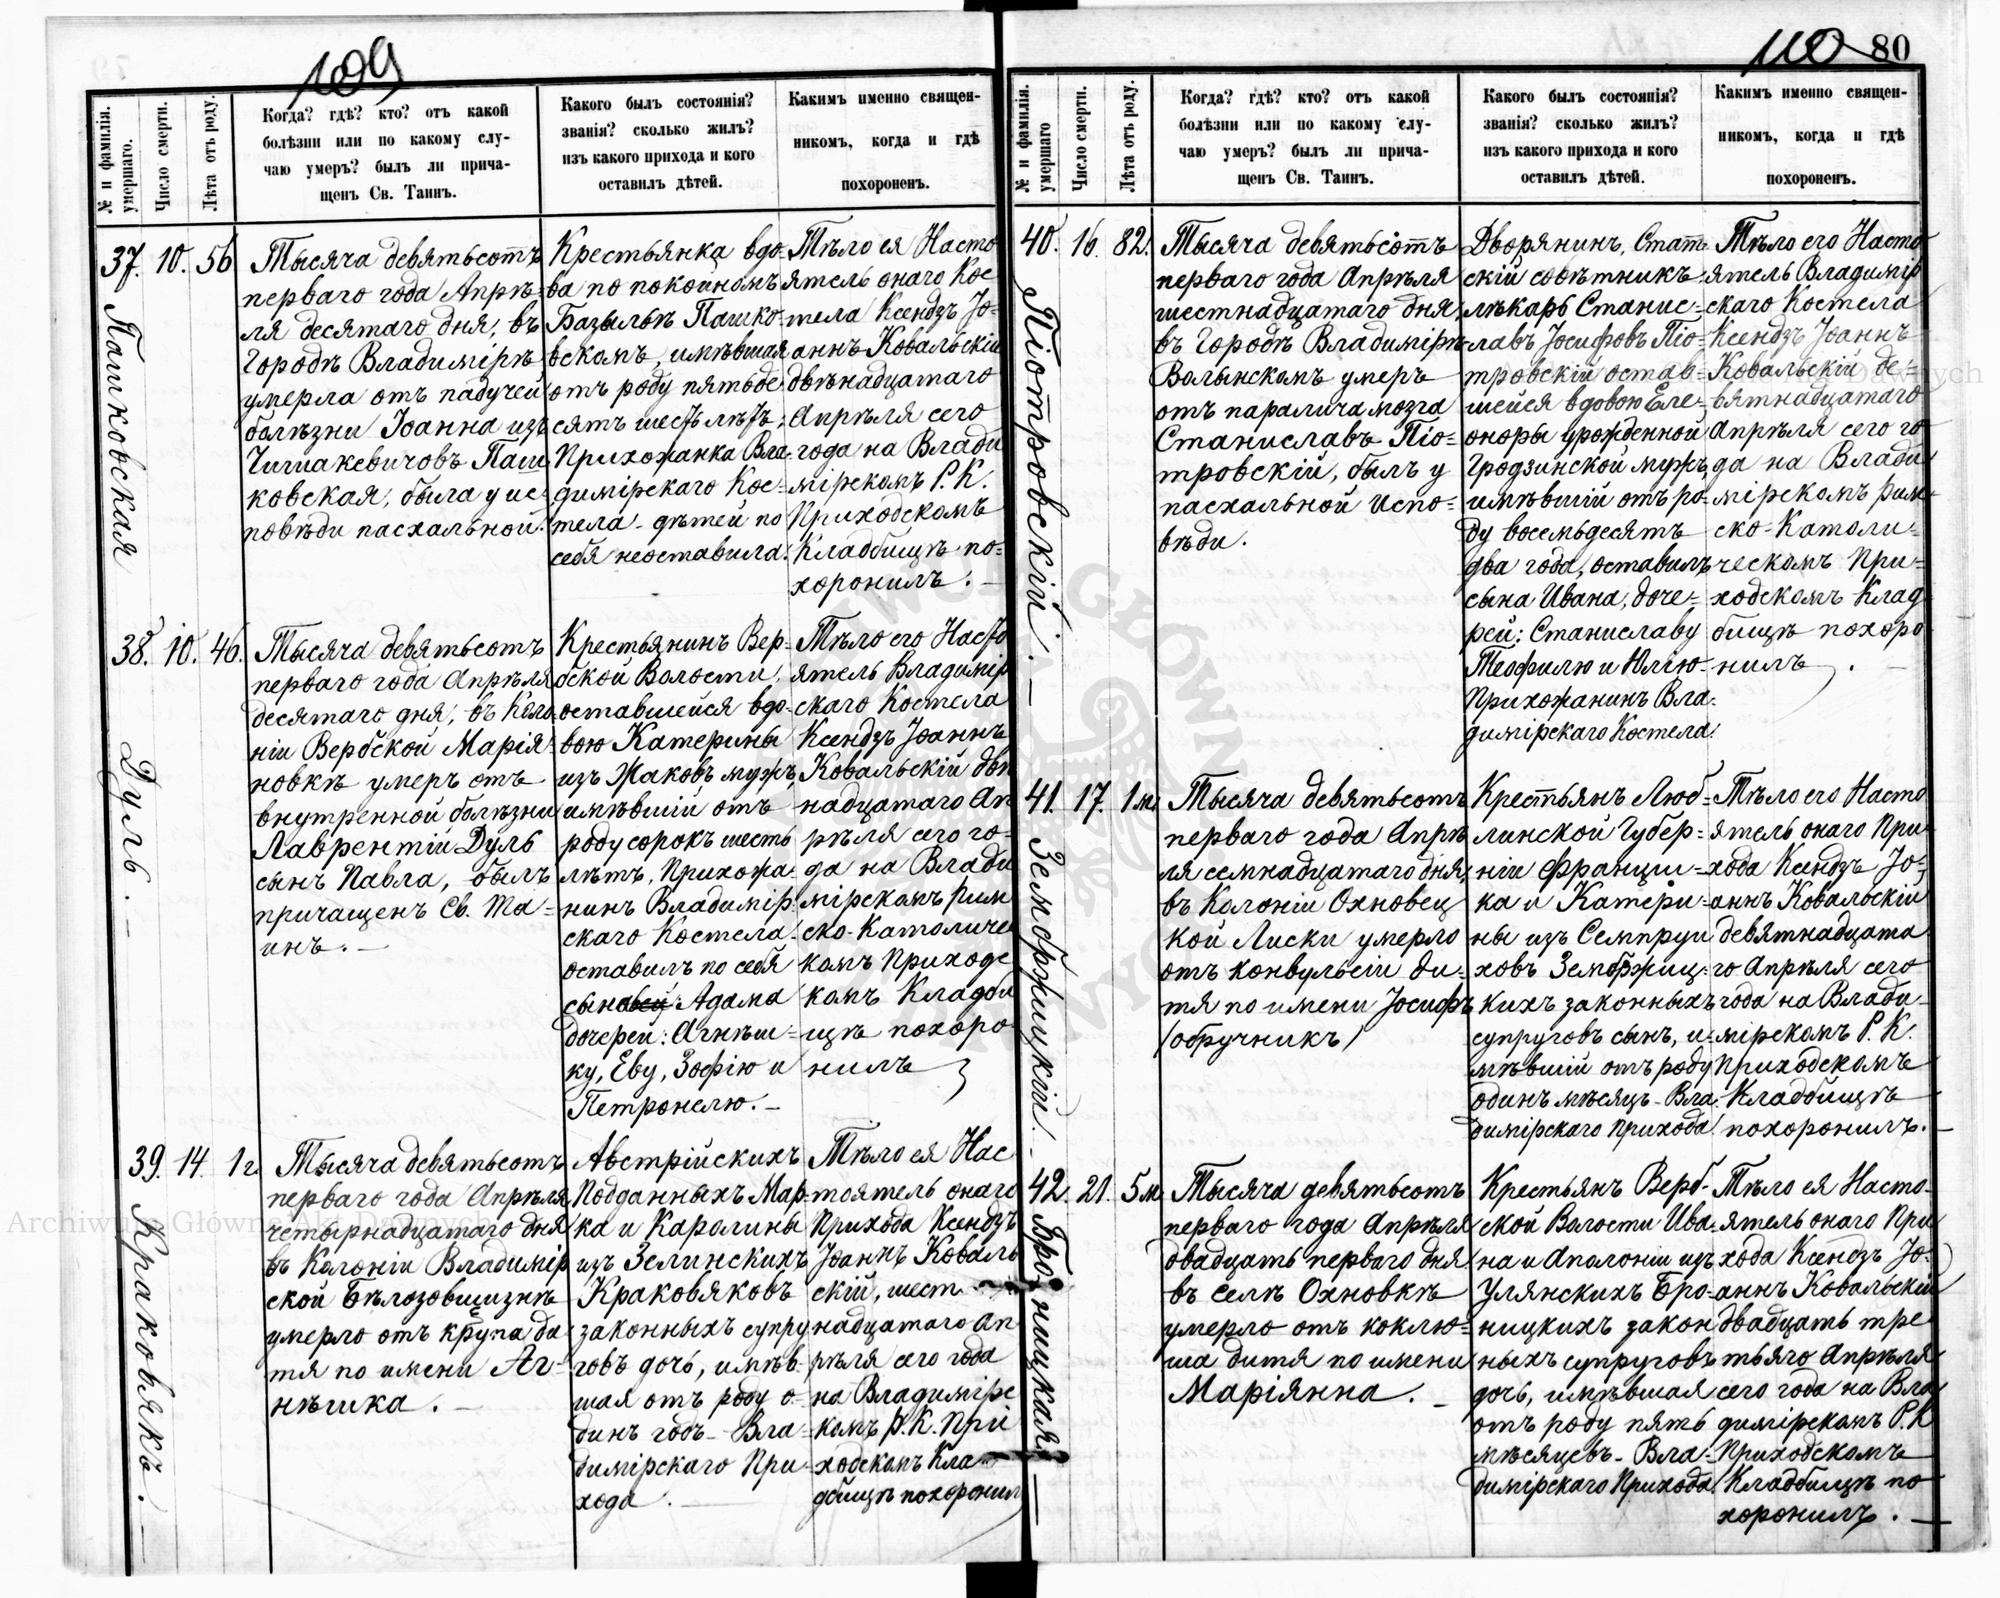 109
№ и фамилія умершаго.
Число смерти.
Лѣта отъ роду.
Когда? гдѣ? кто? отъ какой
болѣзни или по какому слу-
чаю умеръ? былъ ли прича-
щенъ Св. Таинъ.
Какого былъ состоянія?
званія? сколько жилъ?
изъ какого прихода и кого
оставилъ дѣтей.
Какимъ именно священ-
никомъ, когда и гдѣ
похороненъ.
37. 10. 56
Пашковская
Тысяча девятьсотъ
перваго года Апрѣ-
ля десятаго дня, въ
Городѣ Владимірѣ
умерла отъ падучей
болѣзни Іоанна изъ
Чигиакевичовъ Паш
ковская, была у ис
повѣди пасхальной.
Крестьянка вдо-
ва по покойномъ
Базылѣ Пашко-
вскомъ, имѣвшая
отъ роду пятьде
сятъ шесть лѣтъ,
Прихожанка Вла-
димірскаго Кос-
тела - дѣтей по
себя неоставила.
Тѣло ея Насто
ятель онаго Кос
тела Ксендзъ Іо-
аннъ Ковальскій
двѣнадцатаго
Апрѣля сего
года на Влади
мірскомъ Р. К.
Приходскомъ
Кладбищѣ по-
хоронилъ. —
38. 10. 46.
Дуль. —
Тысяча девятьсотъ
перваго года Апрѣля
десятаго дня, въ Коло
ніи Вербской Марія-
новкѣ умеръ отъ
внутренной болѣзни
Лаврентій Дуль
сынъ Павла, былъ
причащенъ Св. Та-
инъ. —
Крестьянинъ Вер-
бской Волости,
оставшейся вдо-
вою Катерины
изъ Жаковъ мужъ,
имѣвшій отъ
роду сорокъ шесть
лѣтъ, Прихожа-
нинъ Владимір-
скаго Костела
оставилъ по себя
сыновей: Адама
дочерей: Агнѣш-
ку, Еву, Зофію и
Петронелю. —
Тѣло его Насто
ятель Владимір
скаго Костела
Ксендзъ Іоаннъ
Ковальскій двѣ
надцатаго Ап
рѣля сего го-
да на Влади
мірскомъ Рим
ско-Католичес
комъ Приходс
комъ Кладби
щѣ похоро-
нилъ
39. 14. 1 г.
Краковякъ. —
Тысяча девятьсотъ
перваго года Апрѣля
четырнадцатаго дня
въ Колоніи Владимір
ской Бѣлозовщизнѣ
умерло отъ крупа ди
тя по имени Аг-
нѣшка. —
Австрійскихъ
Подданныхъ Мар-
ка и Каролины
изъ Зелинскихъ
Краковяковъ
законныхъ супру
говъ дочь, имѣв-
шая отъ роду о-
динъ годъ - Вла-
димірскаго При-
хода. —
Тѣло ея Нас
тоятель онаго
Прихода Ксендзъ
Іоаннъ Коваль
скій, шест
надцатаго Ап
рѣля сего года
на Владимірс
комъ Р. К. При
ходскомъ Кла
дбищѣ похоронил
110 80
№ и фамилія умершаго
Число смерти.
Лѣта отъ роду.
Когда? гдѣ? кто? отъ какой
болѣзни или по какому слу-
чаю умеръ? былъ ли прича-
щенъ Св. Таинъ.
Какого былъ состоянія?
званія? сколько жилъ?
изъ какого прихода и кого
оставилъ дѣтей.
Какимъ именно священ-
никомъ, когда и гдѣ
похороненъ.
40. 16. 82.
Піотровскій. —
Тысяча девятьсотъ
перваго года Апрѣля
шестнадцатаго дня,
въ Городѣ Владимірѣ
Волынскомъ умеръ
отъ паралича мозга
Станиславъ Піо-
тровскій, былъ у
пасхальной испо-
вѣди.
Дворянинъ, Статъ
скій совѣтникъ
лѣкарь Станис-
лавъ Іосифовъ Піо-
тровскій остав-
шейся вдовою Еле-
оноры урожденной
Гродзинской мужъ,
имѣвшій отъ ро-
ду восемьдесятъ
два года, оставилъ
сына Ивана, доче-
рей: Станиславу
Теофилю и Юлію-
Прихожанинъ Вла-
димірскаго Костела
Тѣло его Насто
ятель Владимір
скаго Костела
Ксендзъ Іоаннъ
Ковальскій де-
вятнадцатаго
Апрѣля сего го
да на Влади
мірскомъ Рим
ско-Католи-
ческомъ При-
ходскомъ Клад
бищѣ похоро
нилъ. —
41. 17. 1 м.
Зембржицкій. —
Тысяча девятьсотъ
перваго года Апрѣ
ля семнадцатаго дня,
въ Колоніи Охновец
кой Лиски умерло
отъ конвульсіи ди-
тя по имени Іосифъ
/обручникъ/
Крестьянъ Люб-
линской Губер-
ніи Францыш-
ка и Катери-
ны изъ Семпруш
ховъ Зембржиц-
кихъ законныхъ
супруговъ сынъ, и-
мѣвшій отъ роду
одинъ мѣсяцъ - Вла-
димірскаго Прихода
Тѣло его Насто
ятель онаго При
хода Ксендзъ Іо-
аннъ Ковальскій
девятнадцата
го Апрѣля сего
года на Влади-
мірскомъ Р. К.
Приходскомъ
Кладбищѣ
похоронилъ. —
42. 21. 5 м.
Броницкая —
Тысяча девятьсотъ
перваго года Апрѣля
двадцать перваго дня
въ селѣ Охновкѣ
умерло отъ коклю-
ша дитя по имени
Маріянна. —
Крестьянъ Верб-
ской Волости Ива-
на и Аполоніи изъ
Улянскихъ Бро-
ницкихъ закон
ныхъ супруговъ
дочь, имѣвшая
отъ роду пять
мѣсяцевъ - Вла-
димірскаго Прихода
Тѣло ея Насто-
ятель онаго При
хода Ксендзъ Іо-
аннъ Ковальскій
двадцать тре
тьяго Апрѣля
сего года на Вла
димірскомъ Р. К
Приходскомъ
Кладбищѣ по
хоронилъ. —
Archiwum Główne Akt Dawnych